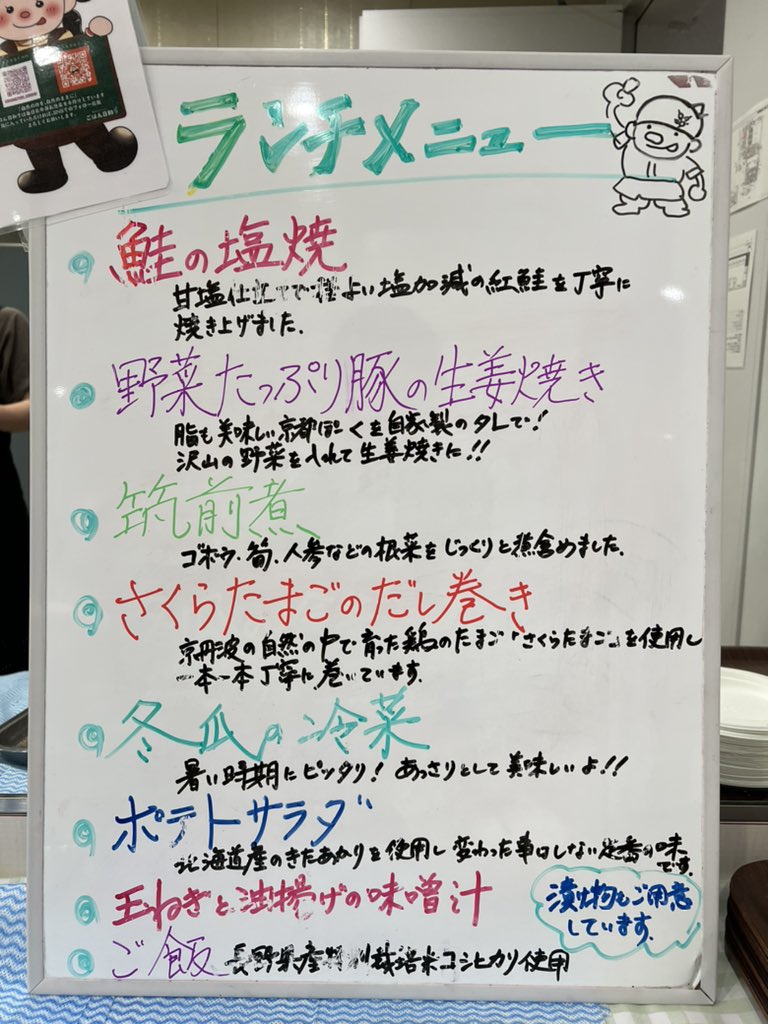 ごはん日和
ランチメニュー
鮭の塩焼
甘塩仕立てで程よい塩加減の紅鮭を丁寧に
焼き上げました.
野菜たっぷり豚の生姜焼き
脂も美味しい京都ぽーくを自家製のタレで!
沢山の野菜を入れて生姜焼きに!!
筑前煮
ゴボウ.筍.人参などの根菜をじっくりと煮含めました.
さくらたまごのだし巻き
京丹波の自然の中で育った鶏のたまご「さくらたまご」を使用し
一本一本丁寧に巻いています.
冬瓜の冷菜
暑い時期にピッタリ! あっさりとして美味しいよ!!
ポテトサラダ
北海道産のきたあかりを使用し変わった事はしない定番の味
です.
玉ねぎと油揚げの味噌汁
漬け物もご用意
しています.
ご飯 長野県産特別栽培米コシヒカリ使用